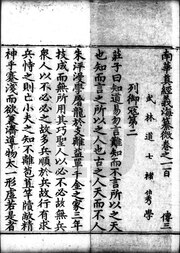 南華真經義海纂微卷之一百 傳三
武林道士褚伯秀學
列御寇第二
莊子曰知道易勿言難知而不言所以之天
也知而言之所以之人也古之人天而不人
朱泙漫學屠龍於支離益單千金之家三年
技成而無所用其巧聖人以必不必故無兵
衆人以不必必之故多兵順於兵故行有求
兵恃之則亡小夫之知不離苞苴竿牘敝精
神乎蹇淺而欲兼濟導物太一形虛若是者